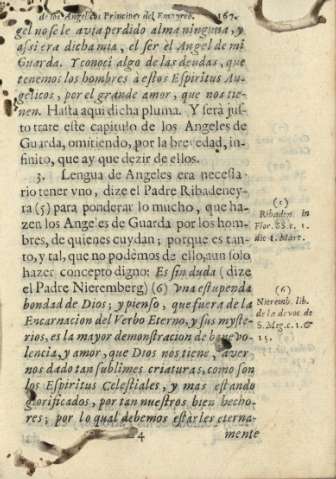 de los Angelicos Principes del Empyreo. 167.
gel no se le avia perdido alma ninguna, y
assi era dicha mia, el ser el Angel de mi
Guarda. Y conocí algo de las deudas, que
tenemos los hombres a estos Espiritus An-
gelicos, por el grande amor, que nos tie-
nen. Hasta aqui dicha pluma. Y será jus-
to trate este capitulo de los Angeles de
Guarda, omitiendo, por la brevedad, in-
finito, que ay que dezir de ellos.
3. Lengua de Angeles era necessa-
rio tener vno, dize el Padre Ribadeney-
ra (5) para ponderar lo mucho, que ha-
zen los Angeles de Guarda por los hom-
bres, de quienes cuydan; porque es tan-
to, y tal, que no podemos de ello, aun solo
hazer concepto digno: Es sin duda (dize
el Padre Nieremberg) (6) vna estupenda
bondad de Dios; y pienso, que fuera de la
Encarnacion del Verbo Eterno, y sus myste-
rios, es la mayor demonstracion de benevo-
lencia, y amor, que Dios nos tiene, aver-
nos dado tan sublimes criaturas, como son
los Espiritus Celestiales, y mas estando
glorificados, por tan nuestros bien hecho-
res; por lo qual debemos estarles eterna-
4 mente
(5)
Ribadin. in
Flor. SS. t. 1.
die 1. Mart.
(6)
Nieremb. lib.
de la devoc. de
S. Mig. c. 1. &
15.